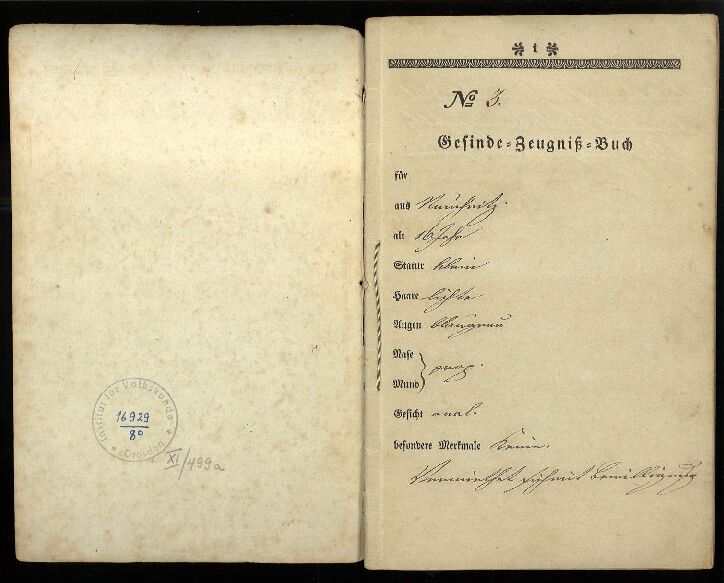 Institut für Volkskunde
16929
8°
Dresden
XI/499a
1
No 3.
Gesinde=Zeugniß=Buch
für
aus
alt 16 Jahr
Statur klein
Haare lichte
Augen blaugrau
Nase
Mund
prop.
Gesicht oval.
besondere Merkmale keine.
Vermiethet sich mit